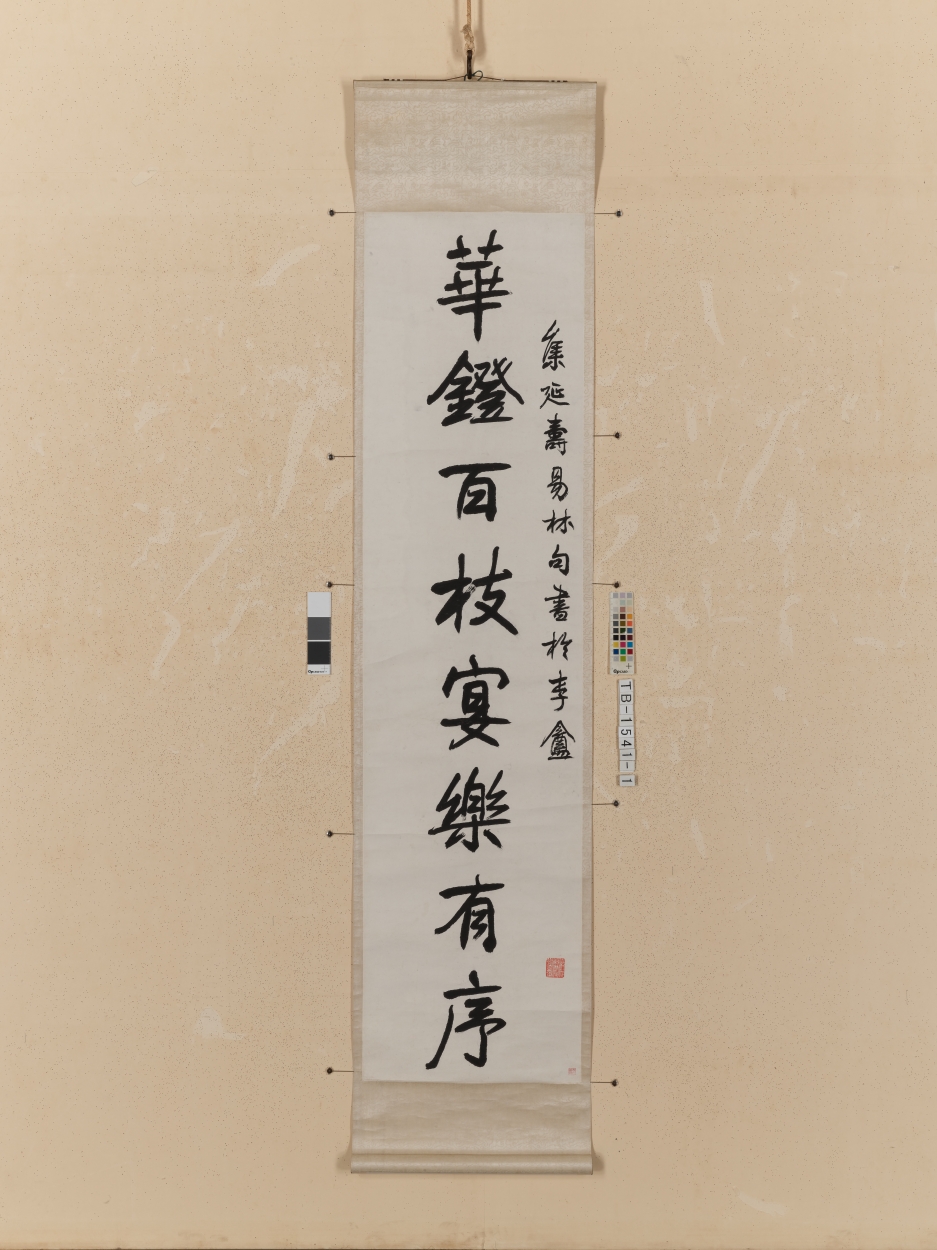 集延壽易林句書於李盦
華鐙百枝宴樂有序
TB-1541-1